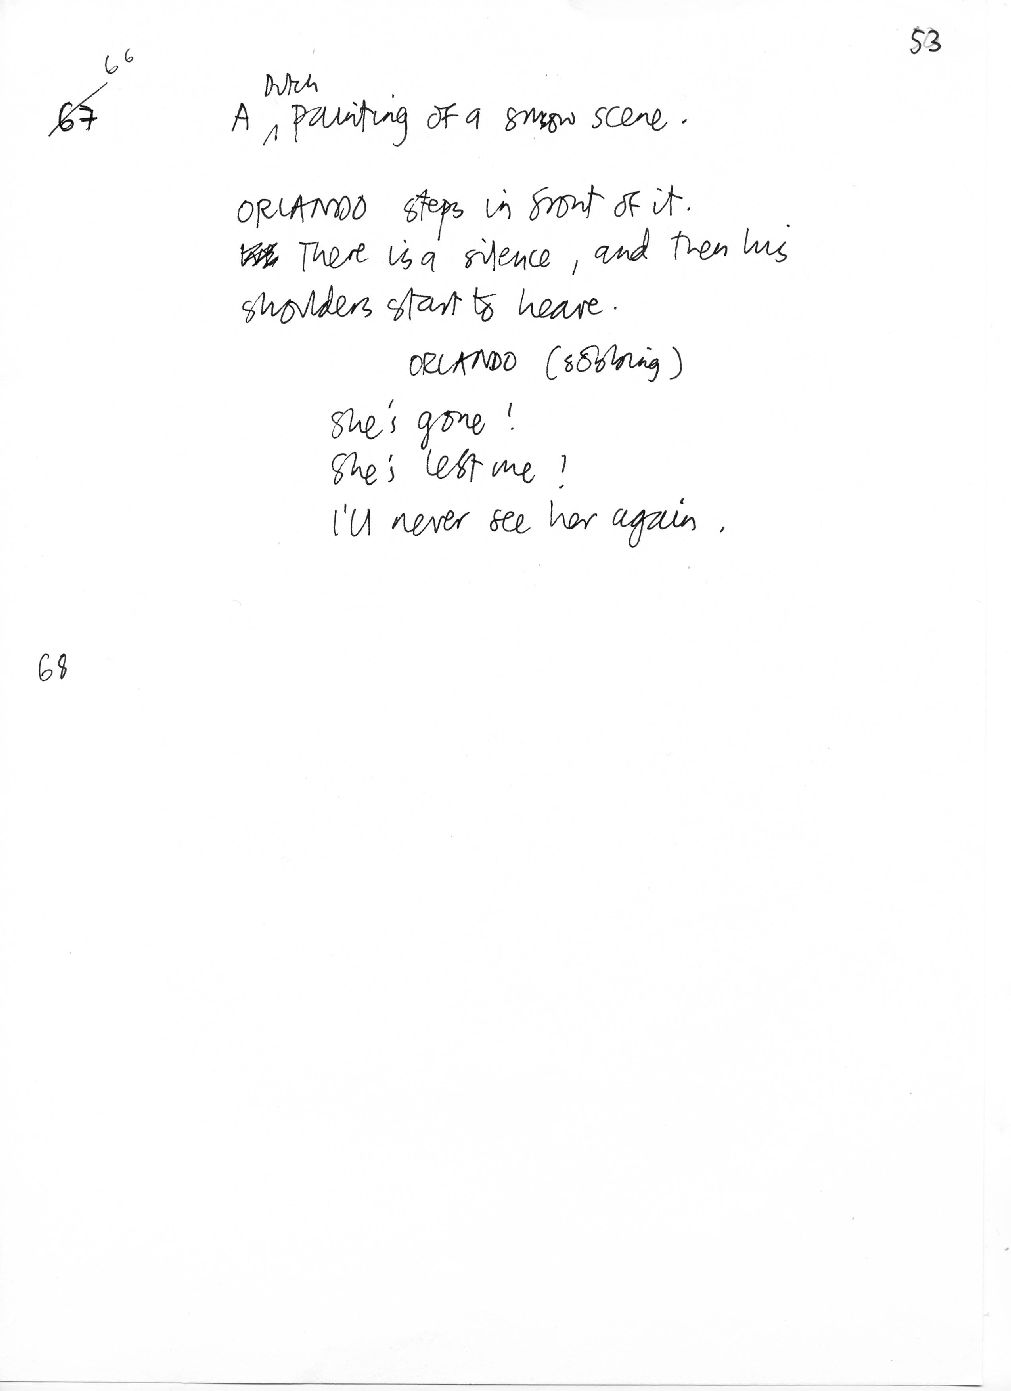 53
66
67
Dutch
A painting of a snow scene.
ORLANDO steps in front of it.
There is a silence, and then his
shoulders start to heave.
ORLANDO (sobbing)
She's gone!
She's left me!
I'll never see her again.
68